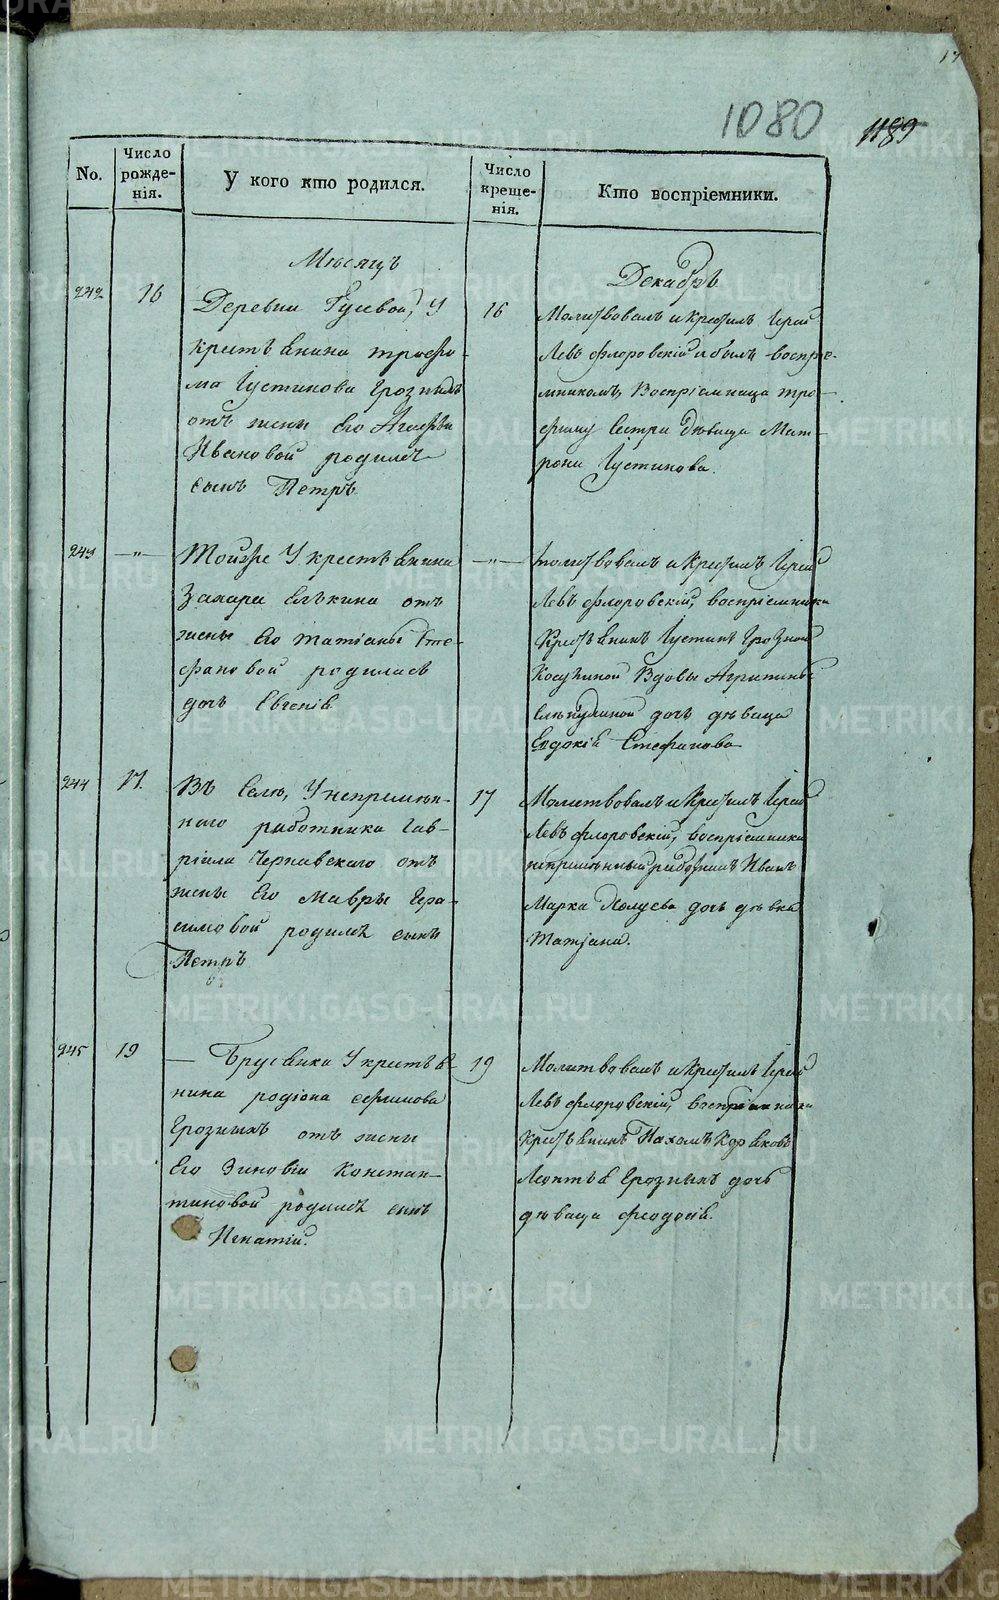 1080
1189
No.
Число рожде-нія.
У кого кто родился.
Число креще-нія.
Кто воспріемники.
Мѣсяцъ
Декабрь
242
16
Деревни Гусевой, У
крестьянина трофи-
ма Іустинова Грозныхъ
отъ жены его Агафьи
Ивановой родился
сынъ Петръ
16
Молитвовалъ и крестилъ Іерей
Левъ Флоровскій и былъ воспріе-
мникомъ, Воспріемница тро-
фиму сестра дѣвица Мат-
рона Іустинова.
243
—"—
Тойже У крестьянина
Захара Елькина отъ
жены его татіаны Сте-
фановой родилась
дочь Евгенія
—"—
молитвовалъ и крестилъ Іерей
Левъ Флоровскій, воспріемники
Крестьянинъ Іустинъ Грозной
Вдовы Агрипины
дочь дѣвица
Евдокія Стефанова
244
17.
Въ Селѣ, У непремѣн-
наго работника Гав-
ріила Чернавскаго отъ
жены его мавры Гера-
симовой родился сынъ
Петръ
17
Молитвовалъ и крестилъ Іерей
Левъ Флоровскій, воспріемники
непремѣнный работникъ Иванъ
Марка дочь дѣвка
татіана.
245
19
— Брусянка У крестья-
нина родіона ефимова
Грозныхъ отъ жены
его Зиновіи Констан-
тиновой родился сынъ
Игнатій.
19
Молитвовалъ и крестилъ Іерей
Левъ Флоровскій, воспріемники
крестьянинъ Пахомъ Коряковъ
Леонтья Грозныхъ дочь
дѣвица Феодосія.
METRIKI.GASO-URAL.RU